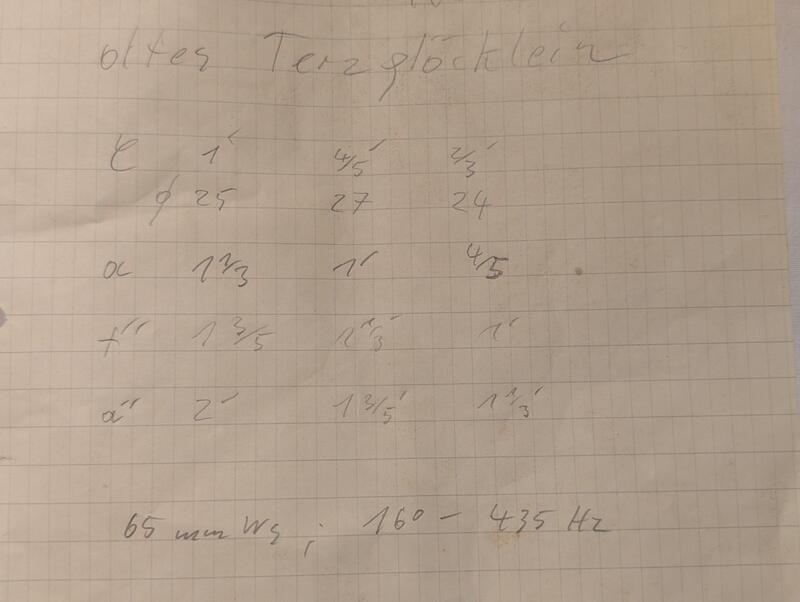 altes Terzglöcklein
C 1' 4/5' 2/3'
φ 25 27 24
a 1 1/3 1' 4/5
f'' 1 3/5 1 1/3' 1'
a'' 2' 1 3/5' 1 1/3'
65 mm Ws ; 16° - 435 Hz